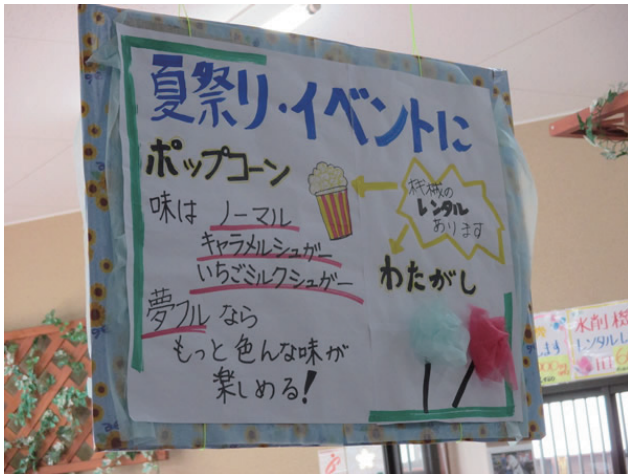 夏祭り・イベントに
ポップコーン
味は ノーマル
キャラメルシュガー
いちごミルクシュガー
夢フル なら
もっと色んな味が
楽しめる!
機械の
レンタル
あります
わたがし
氷削機
レンタルし
ます